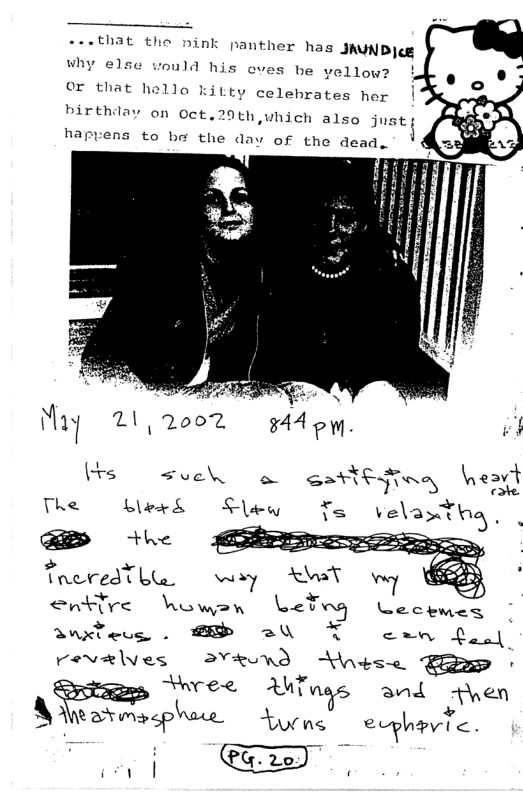 ...that the pink panther has JAUNDICE
why else would his eyes be yellow?
Or that hello kitty celebrates her
birthday on Oct.29th,which also just
happens to be the day of the dead.
May 21, 2002 844 pm.
Its such a satifying heart
rate
The blood flow is relaxing.
the
incredible way that my
entire human being becomes
anxious. all i can feel
revolves around those
three things and then
the atmosphere turns euphoric.
PG. 20